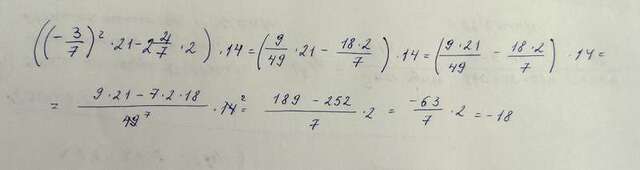 ((-3/7)² · 21 - 2 4/7 · 2) · 14 = (9/49 · 21 - 18·2/7) · 14 = (9·21/49 - 18·2/7) · 14 =
= 9·21-7·2·18/49⁷ · 14² = 189-252/7 · 2 = -63/7 · 2 = -18